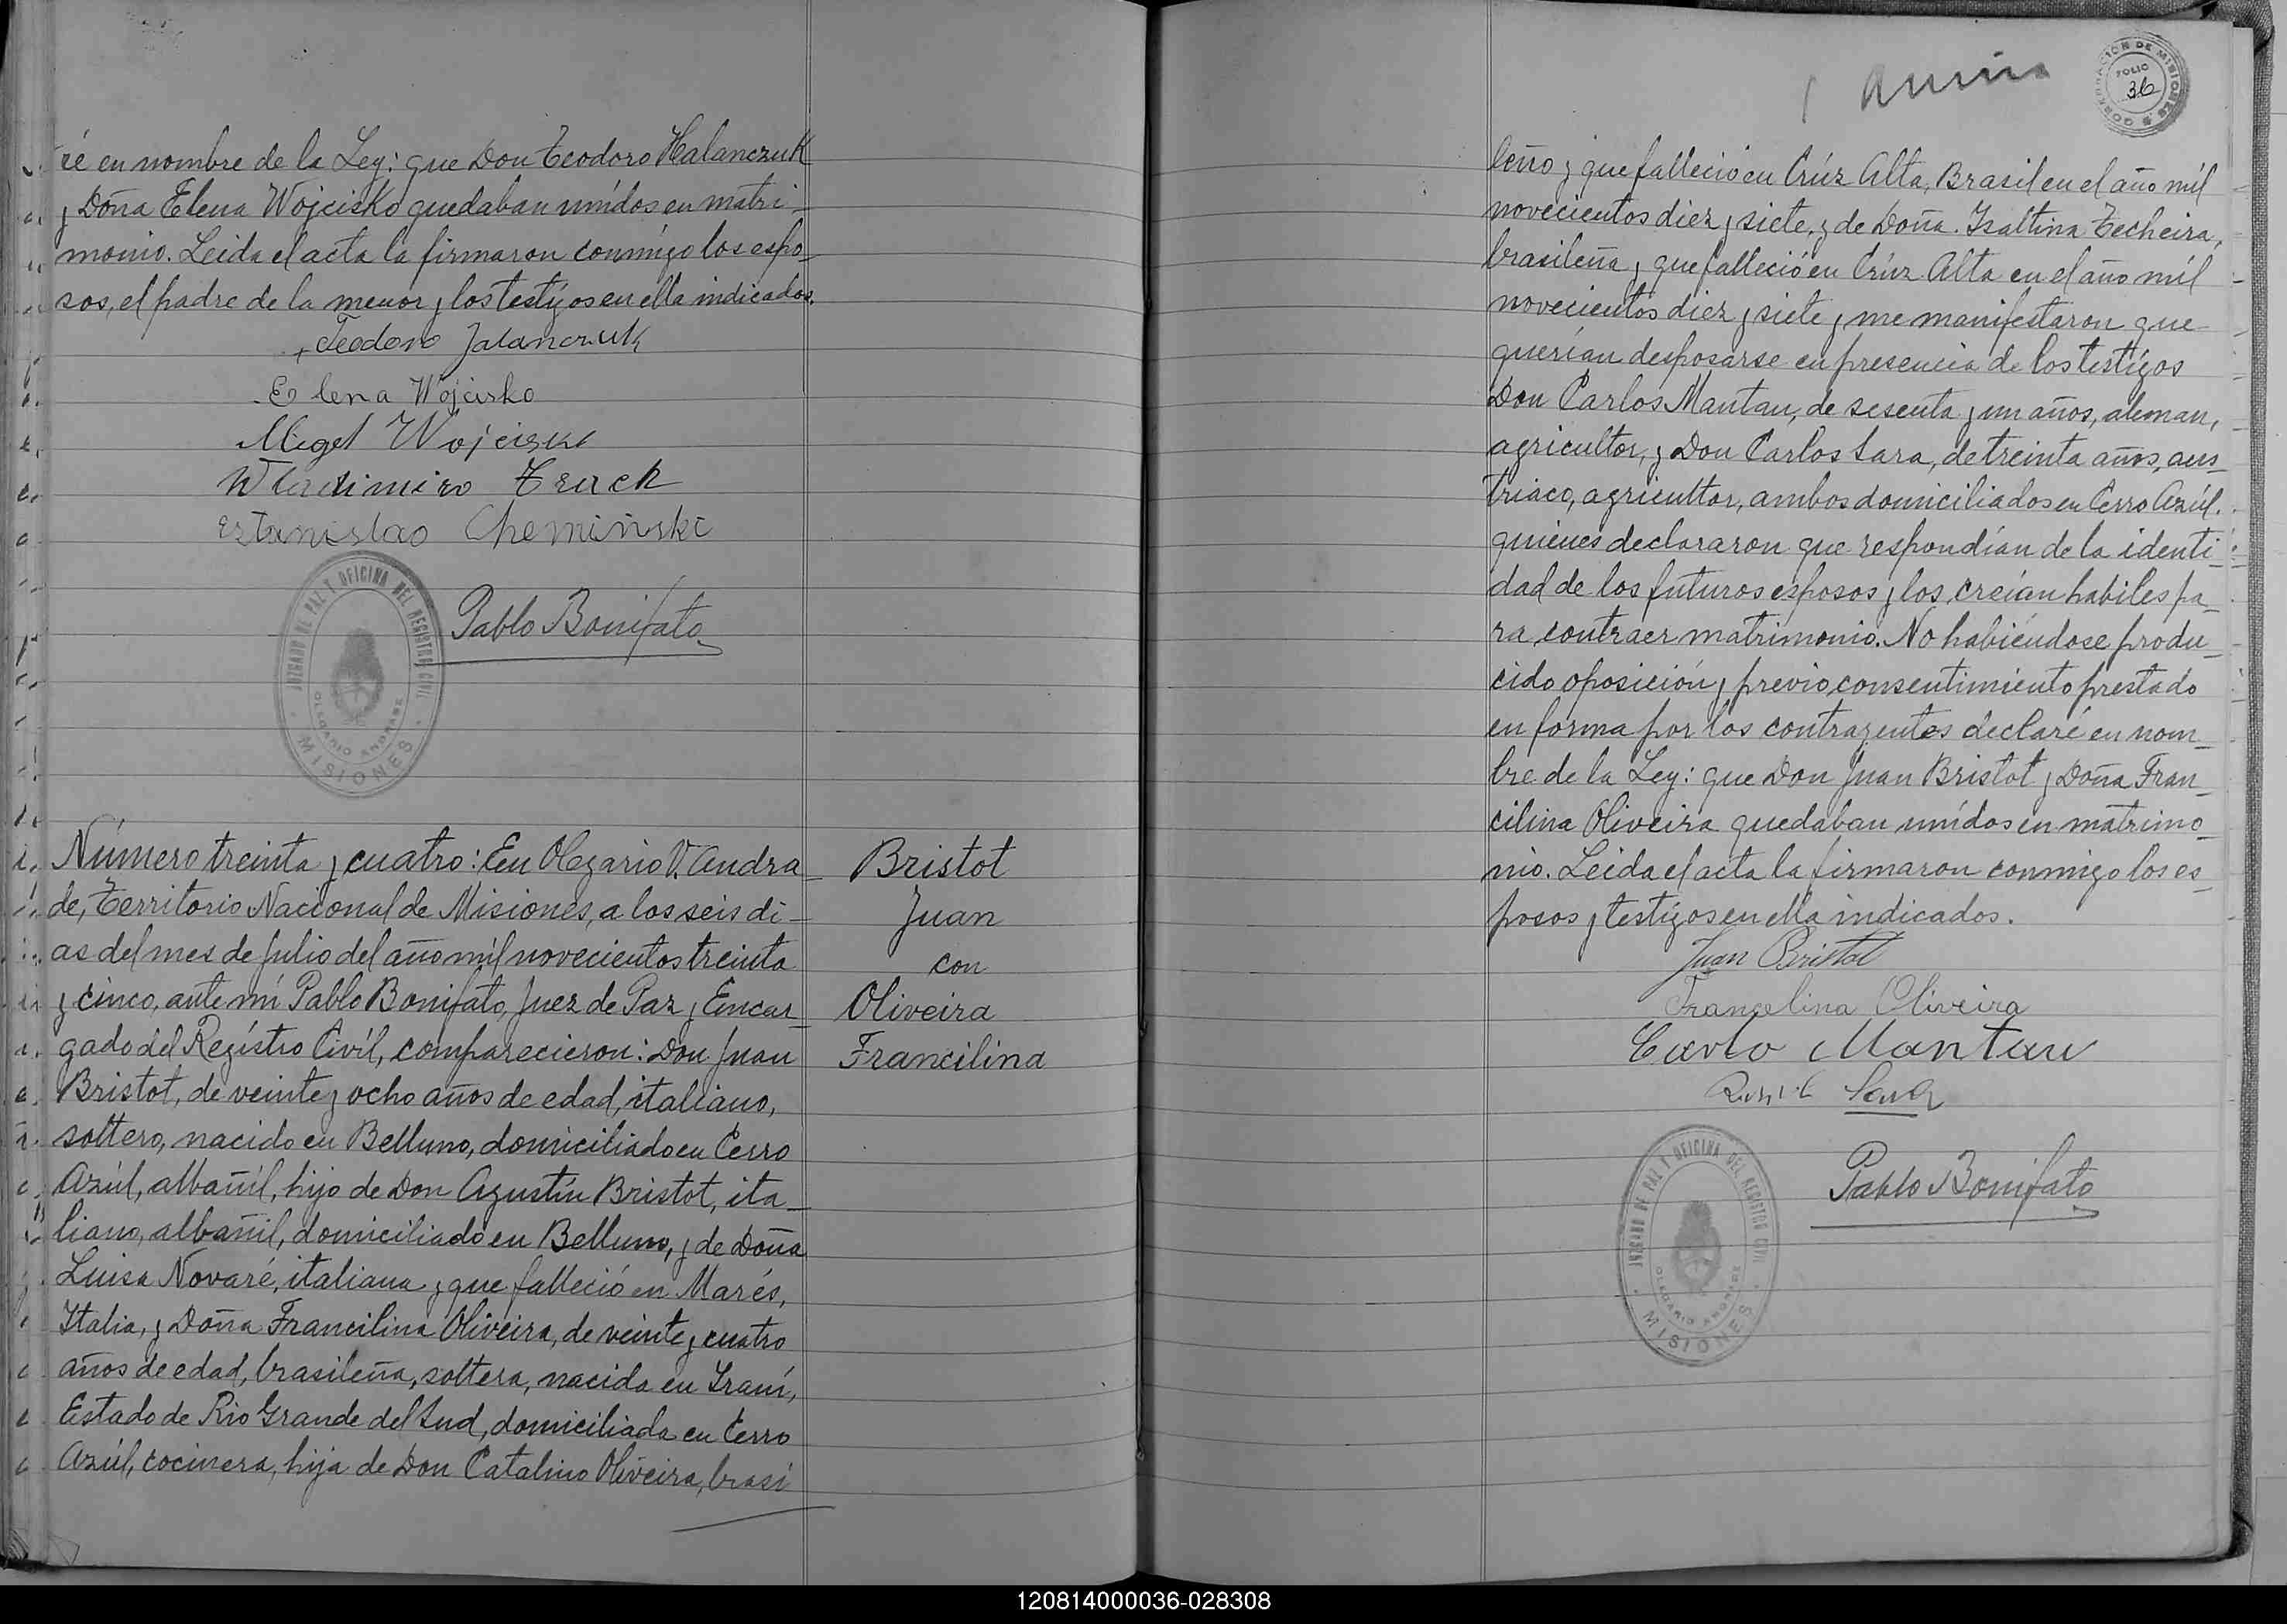 ré en nombre de la Ley: que Don Teodoro Halanczuk
y Doña Elena Wojcisko quedaban unídos en matri-
monio. Leida el acta la firmaron conmígo los espo-
sos, el padre de la menor y los testígos en ella indicados.
Teodoro Jalanczuk
Elena Wojcisko
Migel Wojcisk
Wladimiro Teuck
Estanislao Chemiñski
JUZGADO DE PAZ Y OFICINA DEL REGISTRO CIVIL
OLEGARIO ANDRADE
MISIONES
Pablo Bonifato
Número treinta y cuatro: En Olegario V. Andra-
de, Territorio Nacional de Misiones, a los seis di-
as del mes de Julio del año míl novecientos treinta
y cinco, ante mí Pablo Bonifato, Juez de Paz y Encar-
gado del Regístro Civíl, comparecieron: Don Juan
Bristot, de veinte y ocho años de edad, italiano,
soltero, nacido en Belluno, domiciliado en Cerro
Azúl, albañíl, hijo de Don Agustín Bristot, ita-
liano, albañil, domiciliado en Belluno, y de Doña
Luisa Novaré, italiana y que falleció en Marés,
Italia, y Doña Francilina Oliveira, de veinte y cuatro
años de edad, brasileña, soltera, nacida en Iraní,
Estado de Rio Grande del Sud, domiciliada en Cerro
Azúl, cocinera, hija de Don Catalino Oliveira, brasi
Bristot
Juan
con
Oliveira
Francilina
GOBERNACION DE MISIONES
FOLIO
36
leño y que falleció en Crúz Alta, Brasil en el año míl
novecientos diez y siete, y de Doña Isaltina Techeira,
brasileña y que falleció en Crúz Alta en el año míl
novecientos diez y siete y me manifestaron que
querían desposarse en presencia de los testígos
Don Carlos Mantau, de sesenta y un años, aleman,
agricultor, y Don Carlos Sara, de treinta años, aus-
triaco, agricultor, ambos domiciliados en Cerro Azúl.
quienes declararon que respondían de la identi-
dad de los futuros esposos y los creían habiles pa-
ra contraer matrimonio. No habiéndose produ-
cido oposición y previo consentimiento prestado
en forma por los contrayentes declaré en nom-
bre de la Ley: que Don Juan Bristot y Doña Fran-
cilina Oliveira quedaban unídos en matrimo-
nio. Leida el acta la firmaron conmigo los es-
posos y testígos en ella indicados.
Juan Bristot
Francelina Oliveira
Carlo Mantau
Pablo Bonifato
JUZGADO DE PAZ Y OFICINA DEL REGISTRO CIVIL
OLEGARIO ANDRADE
MISIONES
120814000036-028308